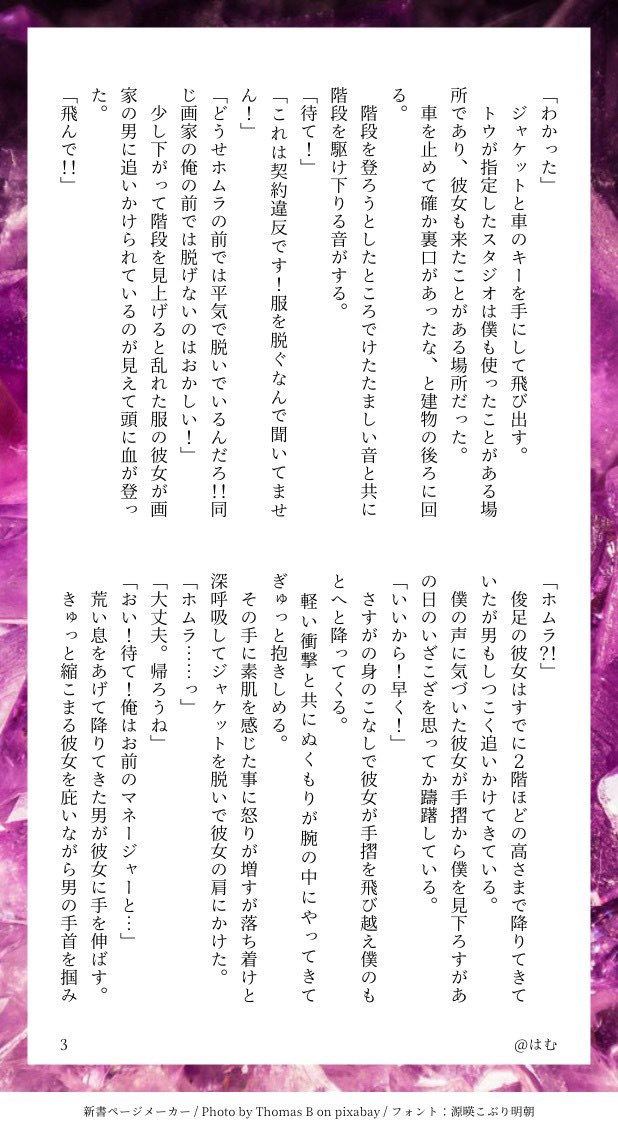 「わかった」
　ジャケットと車のキーを手にして飛び出す。
　トウが指定したスタジオは僕も使ったことがある場
所であり、彼女も来たことがある場所だった。
　車を止めて確か裏口があったな、と建物の後ろに回
る。
　階段を登ろうとしたところでけたたましい音と共に
階段を駆け下りる音がする。
「待て！」
「これは契約違反です！服を脱ぐなんて聞いてませ
ん！」
「どうせホムラの前では平気で脱いでいるんだろ!!同
じ画家の俺の前では脱げないのはおかしい！」
　少し下がって階段を見上げると乱れた服の彼女が画
家の男に追いかけられているのが見えて頭に血が登っ
た。
「飛んで!!」
「ホムラ?!」
　俊足の彼女はすでに２階ほどの高さまで降りてきて
いたが男もしつこく追いかけてきている。
　僕の声に気づいた彼女が手摺から僕を見下ろすがあ
の日のいざこざを思ってか躊躇している。
「いいから！早く！」
　さすがの身のこなしで彼女が手摺を飛び越え僕のも
とへと降ってくる。
　軽い衝撃と共にぬくもりが腕の中にやってきて
ぎゅっと抱きしめる。
　その手に素肌を感じた事に怒りが増すが落ち着けと
深呼吸してジャケットを脱いで彼女の肩にかけた。
「ホムラ……っ」
「大丈夫。帰ろうね」
「おい！待て！俺はお前のマネージャーと…」
　荒い息をあげて降りてきた男が彼女に手を伸ばす。
　きゅっと縮こまる彼女を庇いながら男の手首を掴み
3
@はむ
新書ページメーカー / Photo by Thomas B on pixabay / フォント：源暎こぶり明朝